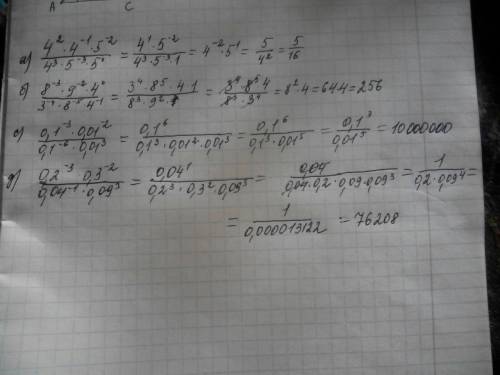 A C
а) 4² · 4⁻¹ · 5⁻² / 4³ · 5⁻³ · 5⁰ = 4¹ · 5⁻² / 4³ · 5⁻³ · 1 = 4⁻² · 5¹ = 5/4² = 5/16
б) 8⁻³ · 9⁻² · 4⁰ / 3⁻⁴ · 8⁻⁵ · 4⁻¹ = 3⁴ · 8⁵ · 4 · 1 / 8³ · 9² · 1 = 3⁴ · 8⁵ · 4 / 8³ · 3⁴ = 8² · 4 = 64·4 = 256
в) 0,1⁻³ · 0,01⁻² / 0,1⁻⁶ · 0,01³ = 0,1⁶ / 0,1³ · 0,01² · 0,01³ = 0,1⁶ / 0,1³ · 0,01⁵ = 0,1³ / 0,01⁵ = 10000000
д) 0,2⁻³ · 0,3⁻² / 0,04⁻¹ · 0,09³ = 0,04¹ / 0,2³ · 0,3² · 0,09³ = 0,04 / 0,04 · 0,2 · 0,09 · 0,09³ = 1 / 0,2 · 0,09⁴ =
= 1 / 0,000013122 = 76208